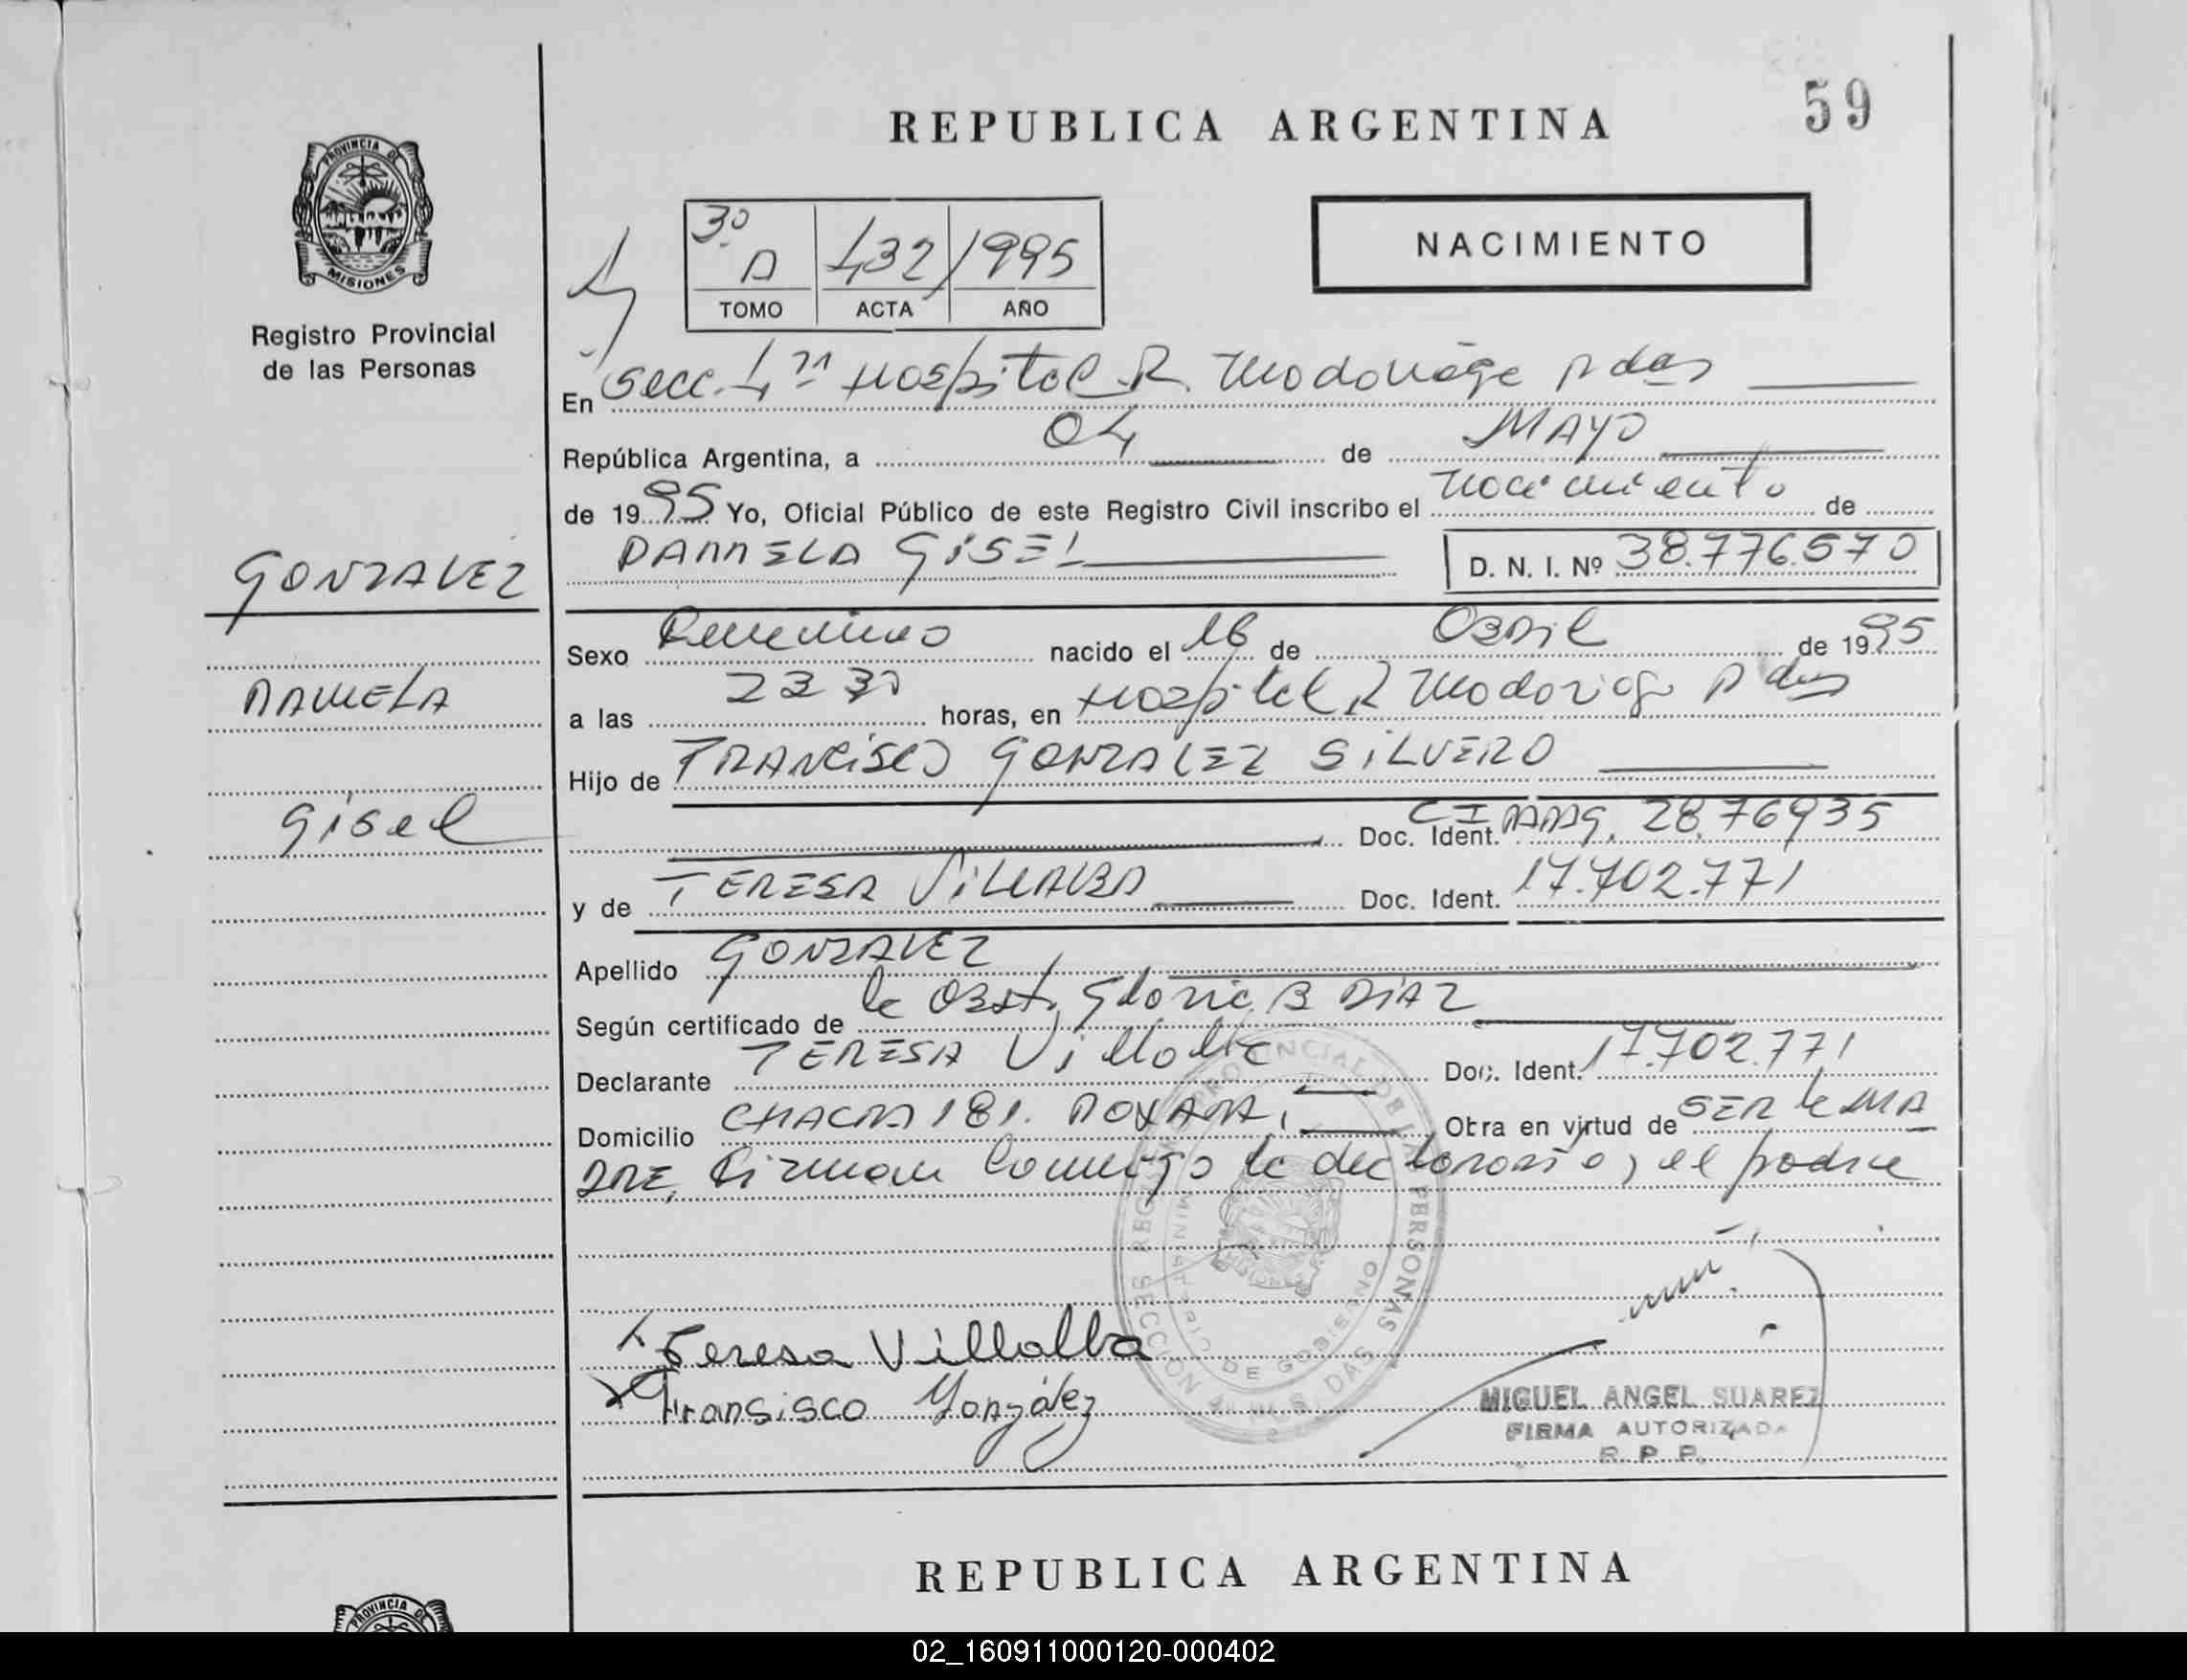 REPUBLICA ARGENTINA
59
PROVINCIA DE
MISIONES
Registro Provincial
de las Personas
3º
A 432 1995
TOMO ACTA AÑO
NACIMIENTO
En Secc. 4ª Hospital R. Madariaga Pdas
República Argentina, a 04 de MAYO
de 1995 Yo, Oficial Público de este Registro Civil inscribo el nacimiento de
DANIELA GISEL
D. N. I. Nº 38.776.570
GONZALEZ
DANIELA
Gisel
Sexo Femenino nacido el 16 de Abril de 1995
a las 23 30 horas, en Hospital R Madariaga Pdas
Hijo de FRANCISCO GONZALEZ SILVERO
Doc. Ident. CI 28.76935
y de TERESA VILLALBA Doc. Ident. 17.702.771
Apellido GONZALEZ
Según certificado de la Obst. Gloria B DIAZ
Declarante TERESA Villalba Doc. Ident. 17.702.771
Domicilio CHACRA 181. Obra en virtud de SER la MA
DRE, Firman conmigo la declarante y el padre
Teresa Villalba
Fransisco González
MIGUEL ANGEL SUAREZ
FIRMA AUTORIZADA
R. P. P.
REPUBLICA ARGENTINA
PROVINCIA DE
02_160911000120-000402